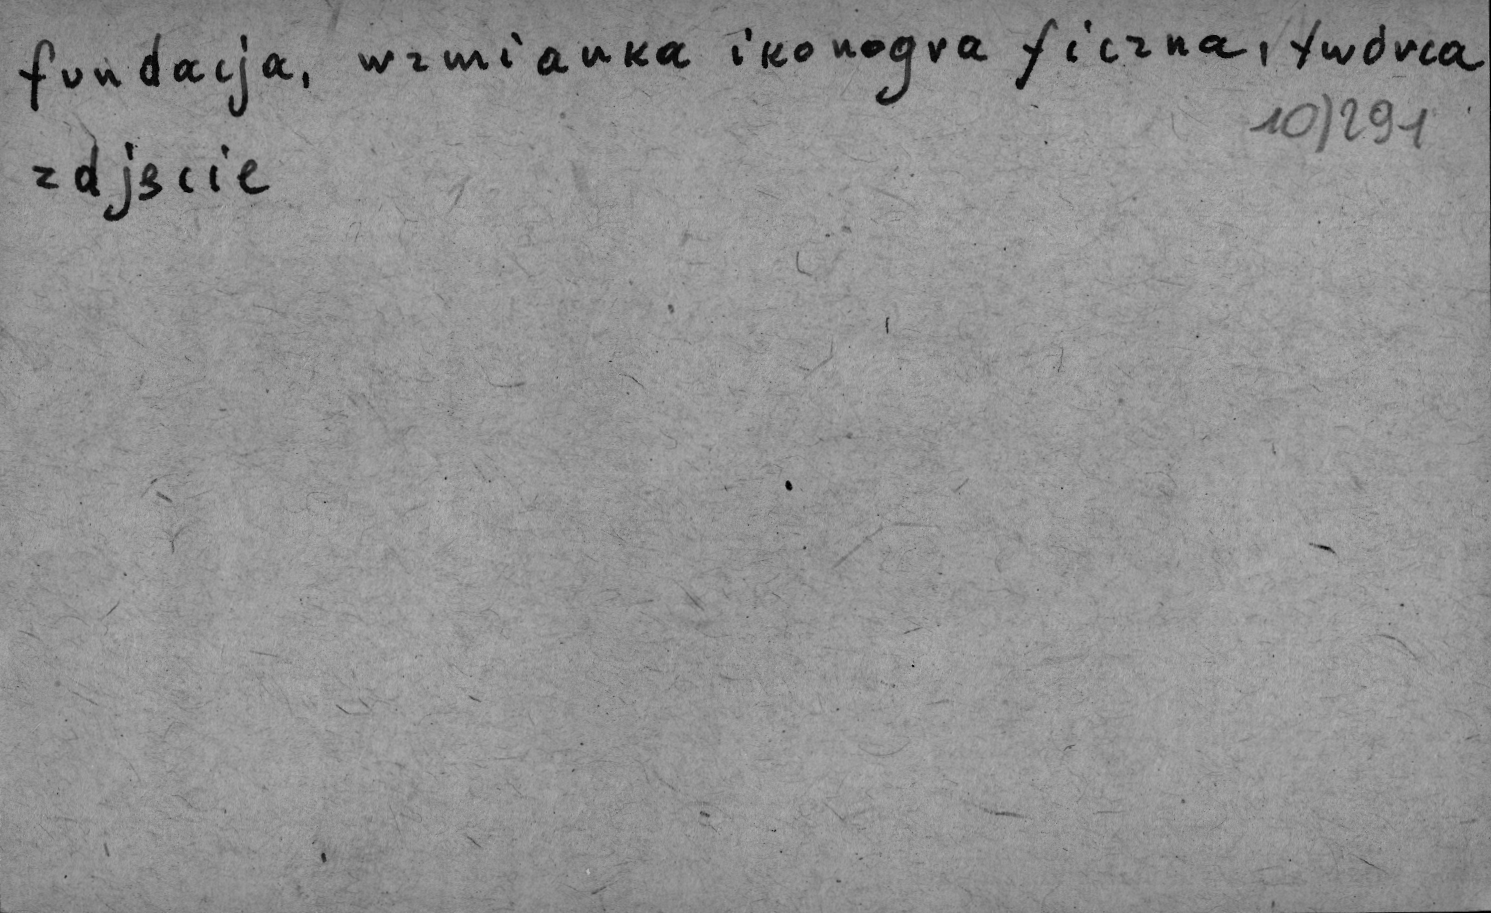 fundacja, wzmianka ikonograficzna, twórca
10)291
zdjęcie